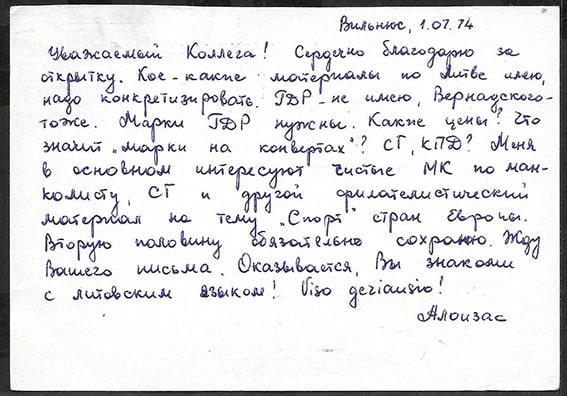 Вильнюс, 1.07.74
Уважаемый Коллега! Сердечно благодарю за
открытку. Кое-какие материалы по Литве имею,
надо конкретизировать. ГДР - не имею, Вернадского-
тоже. Марки ГДР нужны. Какие цены? Что
значит „марки на конвертах"? СГ, КПД? Меня
в основном интересуют чистые МК по ман-
колисту, СГ и другой филателистический
материал на тему „Спорт" стран Европы.
Вторую половину обязательно сохраню. Жду
Вашего письма. Оказывается, Вы знакомы
с литовским языком! Viso geriausio!
Алоизас